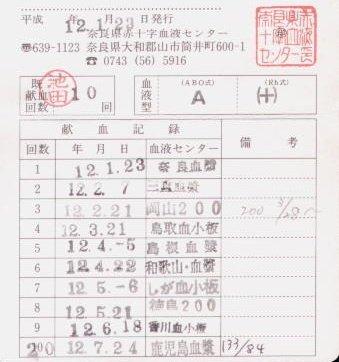 平成 12.1.23 日発行
奈良県赤十字血液センター
〒639-1123 奈良県大和郡山市筒井町600-1
☎ 0743 (56) 5916
奈良県赤十字血液センター
既献血回数 池田 10 回 血液型 (ABO式) A (Rh式) (+)
献血記録 備考
回数 年 月 日 血液センター
1 12.1.23 奈良血漿
2 12.2. 7 三重血漿
3 12.2.21 岡山200 200
4 12.3.21 鳥取血小板
5 12.4.-5 島根血漿
6 12.4.22 和歌山・血漿
7 12.5.-6 しが血小板
8 12.5.21 徳島200
9 12.6.18 香川血小板
12.7.24 鹿児島血漿 133/84